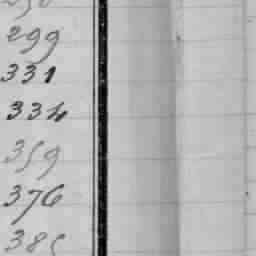 299
331
334
359
376
385